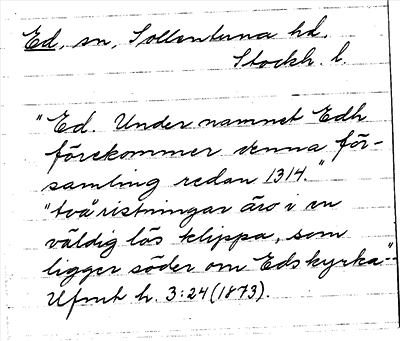 Ed, sn, Sollentuna hd.
Stockh. l.
"Ed. Under namnet Edh
förekommer denna för-
samling redan 1314."
"två ristningar äro i en
väldig lös klippa, som
ligger söder om Eds kyrka" -
Ufmt h. 3:24 (1873).